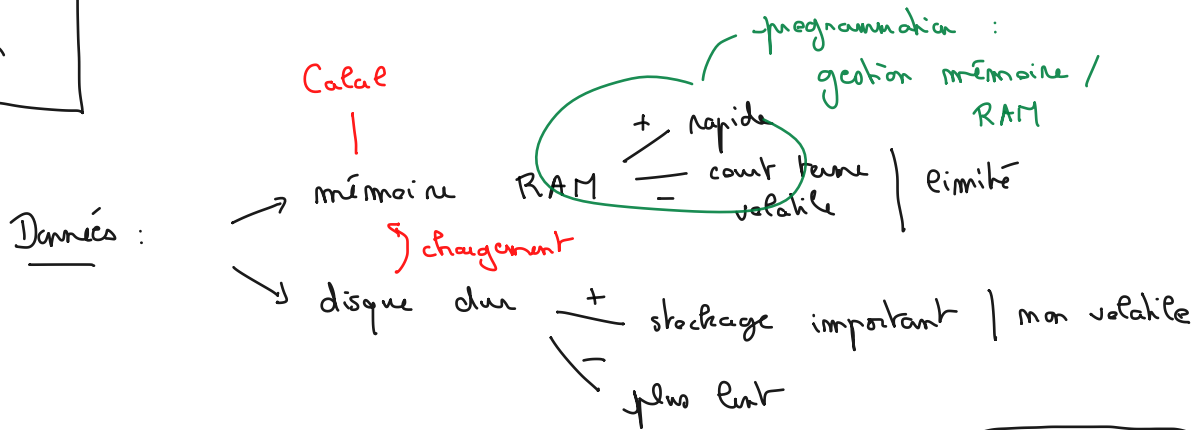 programmation :
gestion mémoire /
RAM
Calcul
+ rapide
mémoire RAM
- court terme | limité
volatile
Données :
chargement
disque dur + stockage important | non volatile
- plus lent